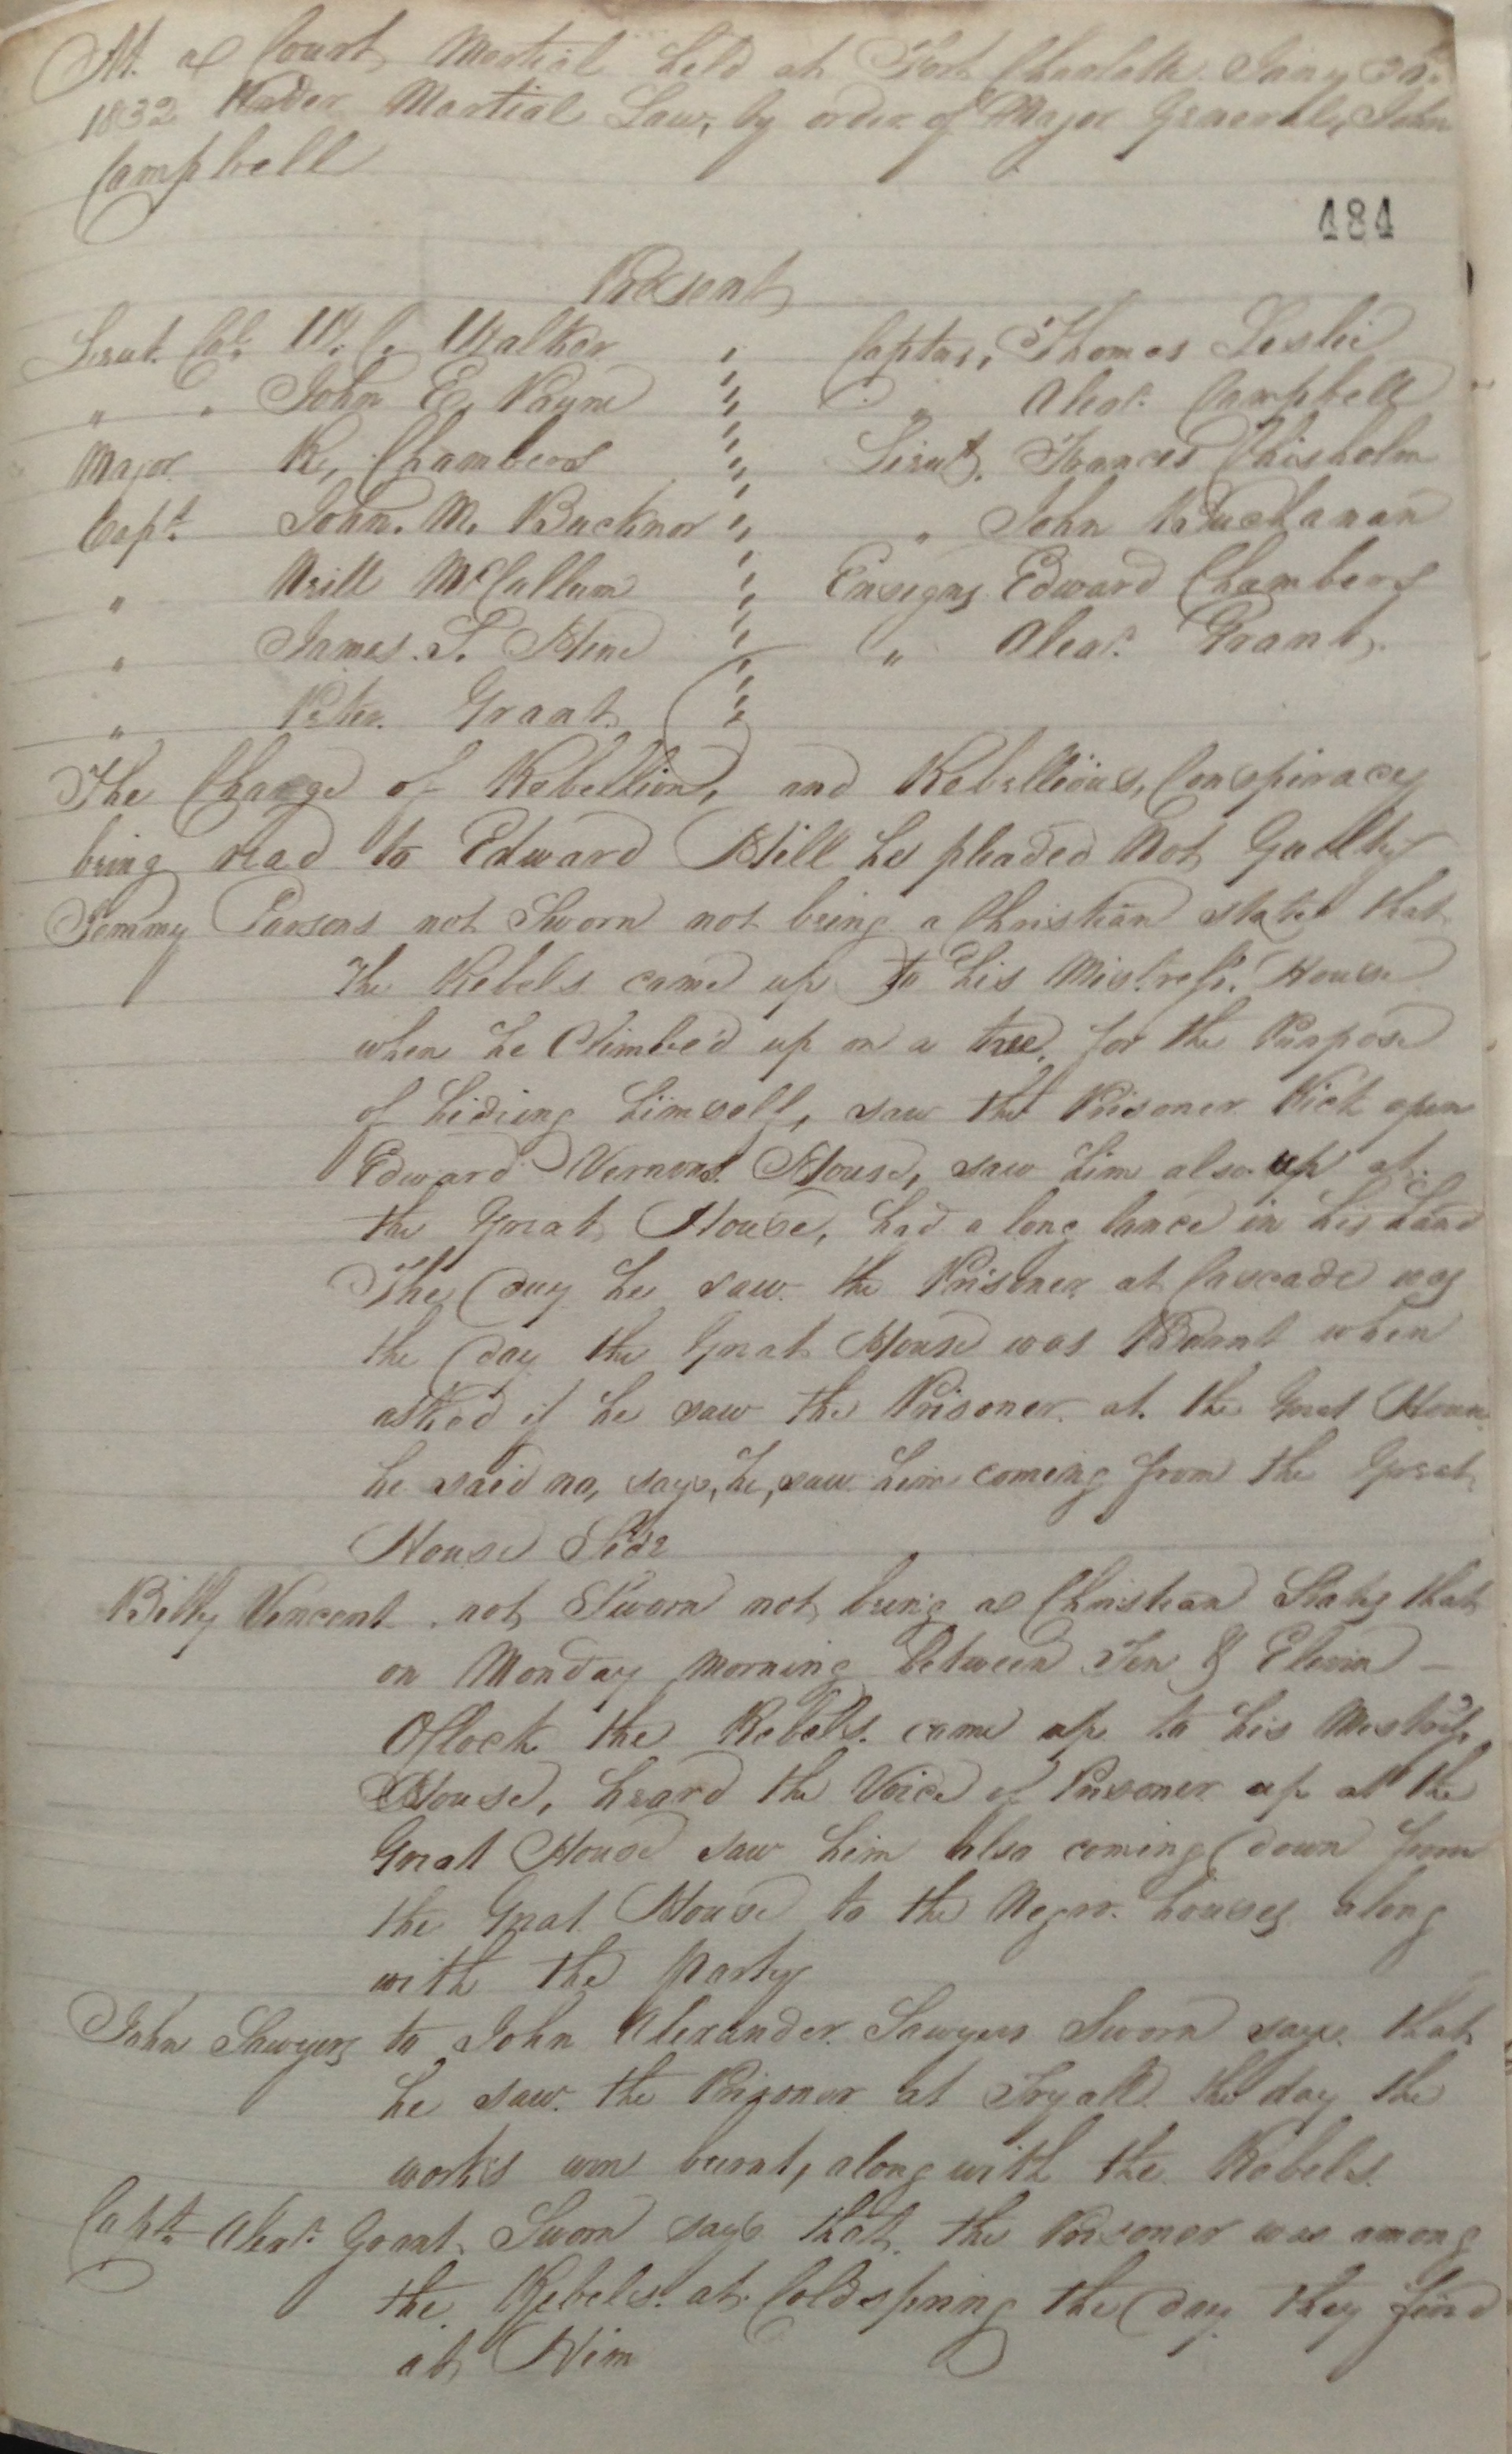 At a Court Martial held at Fort Charlotte Jany
1832 Under Martial Law, by order of Major General, John
Campbell
484
Present
Lieut. Col. W. C. Walker " Captns, Thomas Leslie
" " John E. Payne " " Alexr. Campbell
Major R, Chambers " Lieuts. Frances Chisholm
Capt. John. M. Bucknor " " John Buchanan
" Neill McCallum " Ensigns Edward Chambers
" James. S. Hine " " Alexr. Grant
" Peter. Grant "
The Charge of Rebellion, and Rebellious, Conspiracy
being read to Edward Hill he pleaded Not Guilty
Jemmy Parsons not Sworn not being a Christian states that
the Rebels came up to his Mistress. House
when he Climbe'd up on a tree, for the Purpose
of hideing himself, saw the Prisoner Kick open
Edward Vernons. House, saw him also up at
the Great House, had a long lance in his hand
The Day he saw the Prisoner at Cascade was
the day the Great House was Burnt when
asked if he saw the Prisoner at the Great House
he said no, says, he, saw him coming from the Great
House Side
Billy Vincent not Sworn not being a Christian States that
on Monday Morning between Ten & Elevin
OClock the Rebels came up to his Mistress
House, heard the Voice of Prisoner up at the
Great House saw him also coming down from
the Great House to the Negro houses along
with the Party
John Sawyers to John Alexander Sawyers Sworn says that
he saw the Prisoner at Tryall the day the
works were burnt, along with the Rebels.
Captn. Alexr. Grant Sworn says that the Prisoner was among
the Rebels. at Coldspring the day they fired
at Him